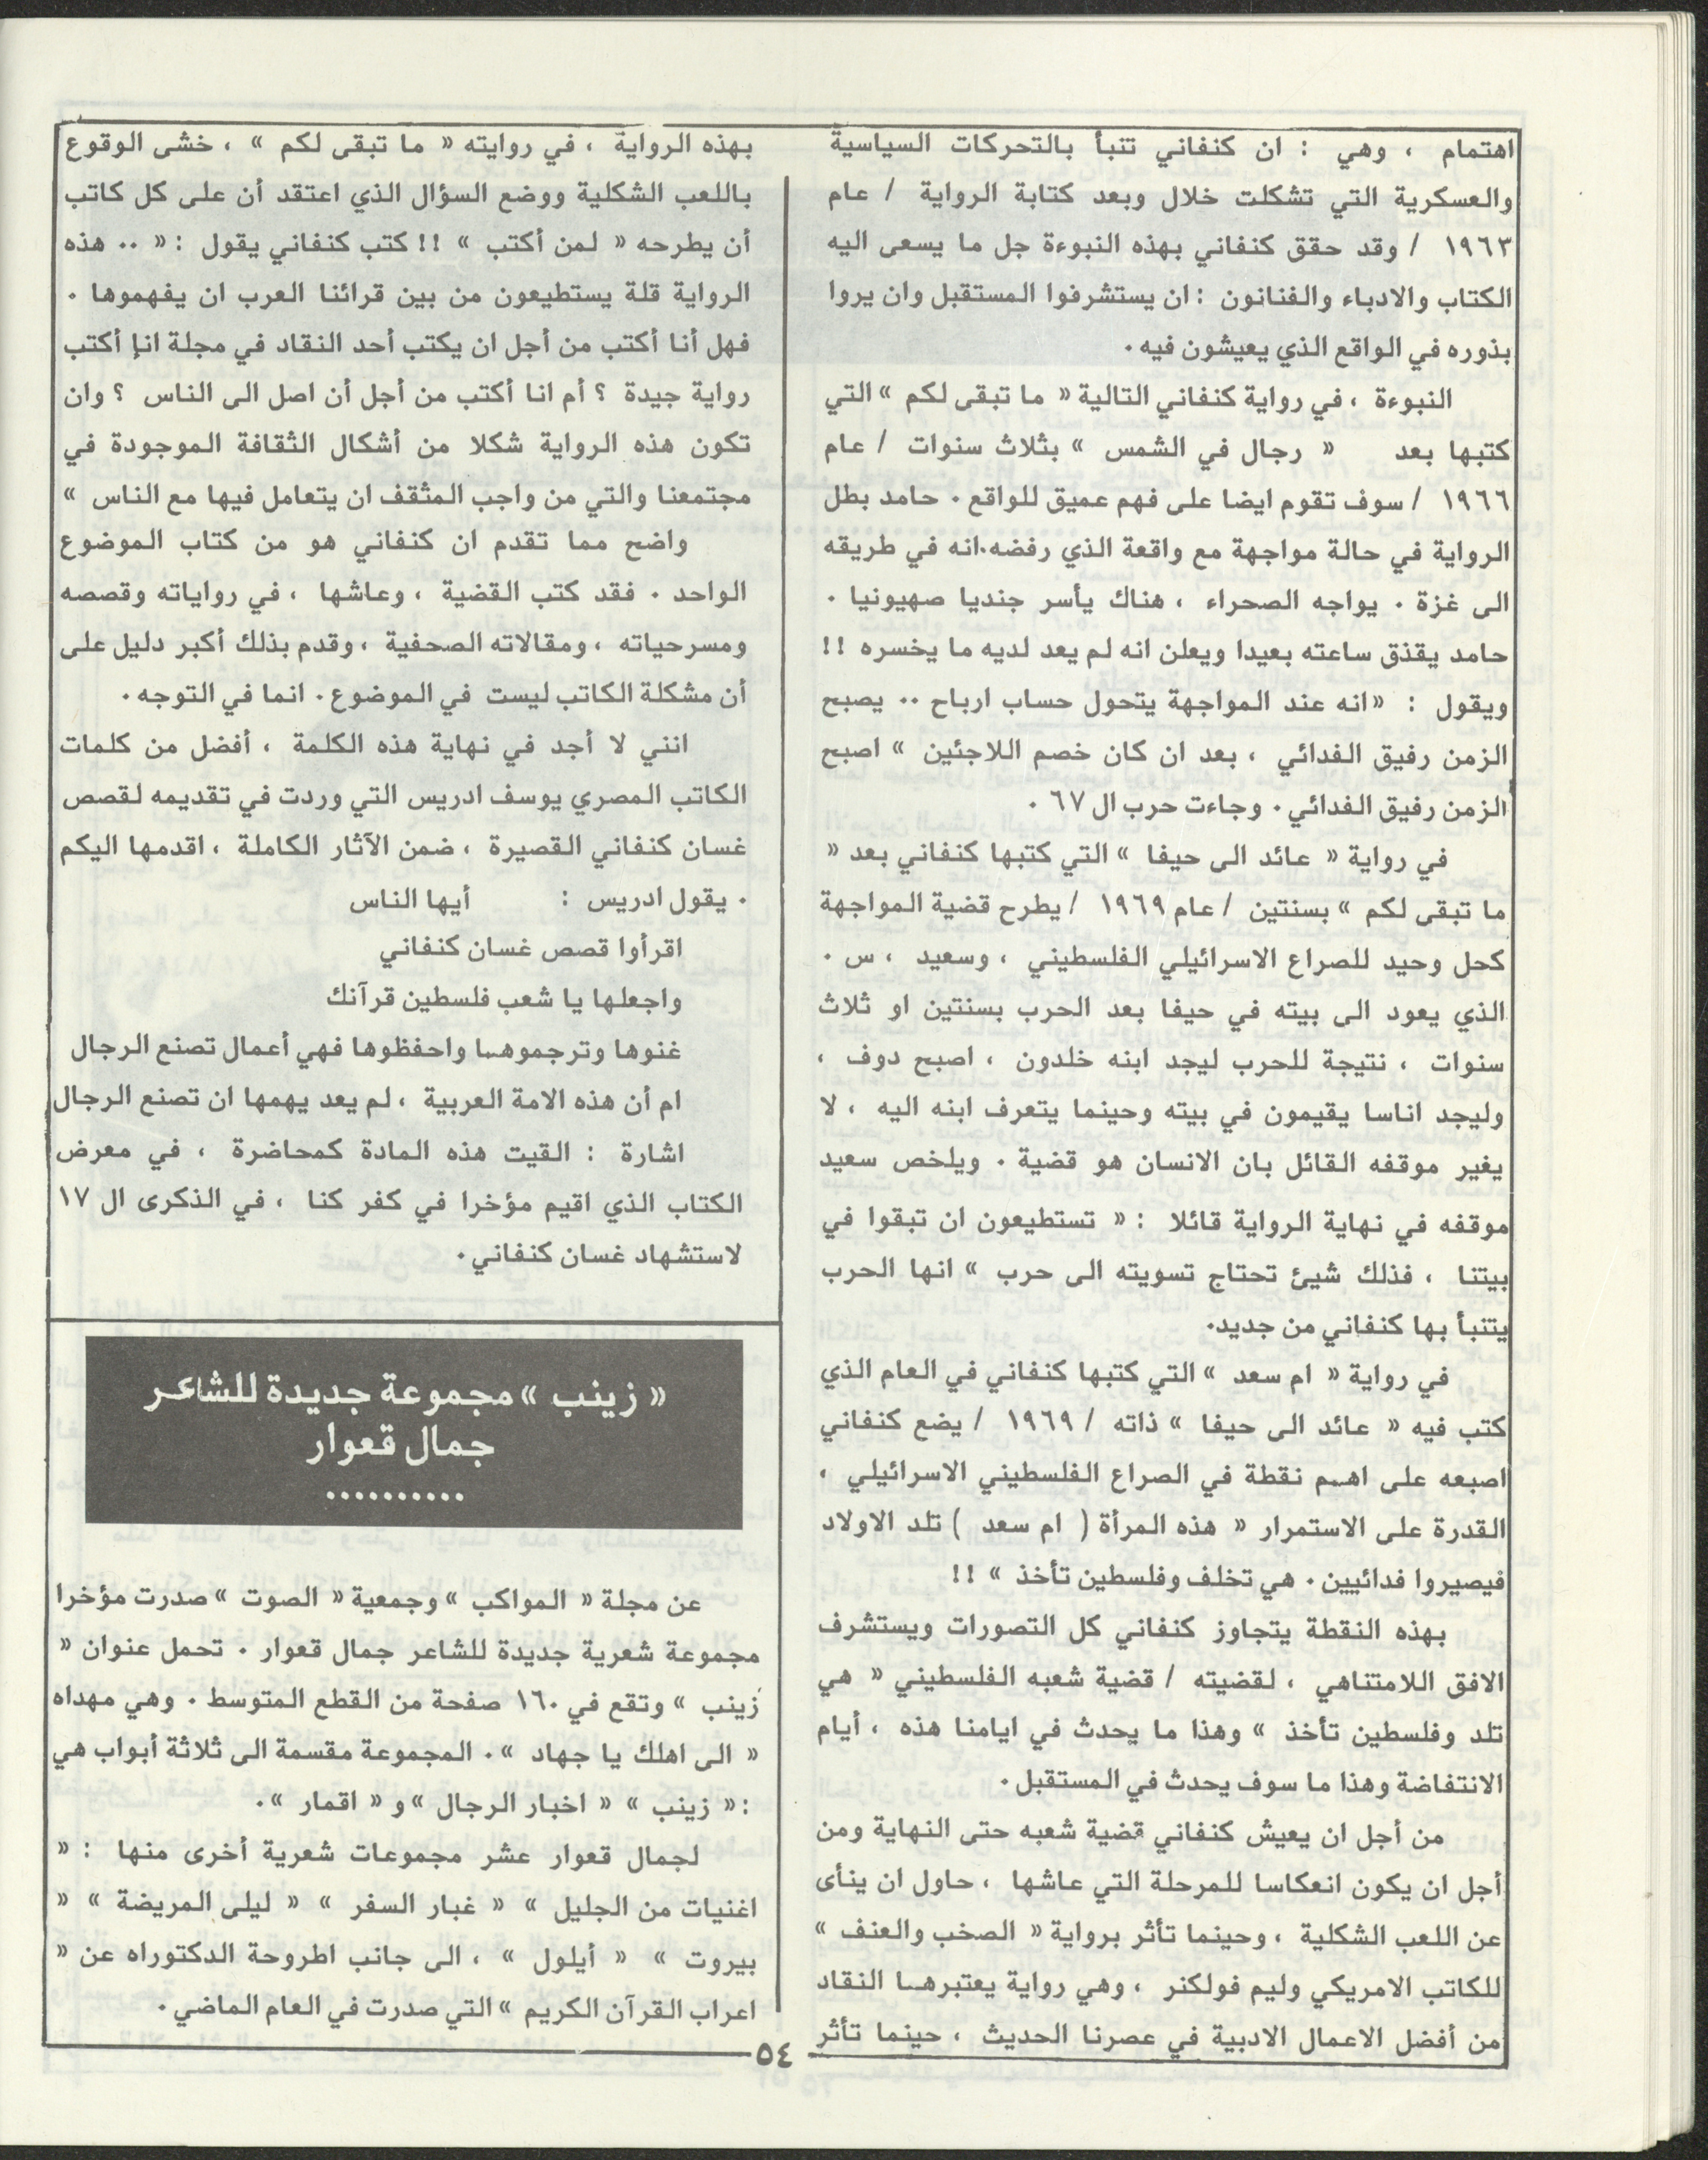 اهتمام ، وهي : ان كنفاني تنبأ بالتحركات السياسية
والعسكرية التي تشكلت خلال وبعد كتابة الرواية / عام
١٩٦٣ / وقد حقق كنفاني بهذه النبوءة جل ما يسعى اليه
الكتاب والادباء والفنانون : ان يستشرفوا المستقبل وان يروا
بذوره في الواقع الذي يعيشون فيه .
النبوءة ، في رواية كنفاني التالية « ما تبقى لكم » التي
كتبها بعد « رجال في الشمس » بثلاث سنوات / عام
١٩٦٦ / سوف تقوم ايضا على فهم عميق للواقع . حامد بطل
الرواية في حالة مواجهة مع واقعة الذي رفضه.انه في طريقه
الى غزة . يواجه الصحراء ، هناك يأسر جنديا صهيونيا .
حامد يقذق ساعته بعيدا ويعلن انه لم يعد لديه ما يخسره !!
ويقول : «انه عند المواجهة يتحول حساب ارباح .. يصبح
الزمن رفيق الفدائي ، بعد ان كان خصم اللاجئين » اصبح
الزمن رفيق الفدائي . وجاءت حرب ال ٦٧ .
في رواية « عائد الى حيفا » التي كتبها كنفاني بعد «
ما تبقى لكم » بسنتين / عام ١٩٦٩ / يطرح قضية المواجهة
كحل وحيد للصراع الاسرائيلي الفلسطيني ، وسعيد ، س .
الذي يعود الى بيته في حيفا بعد الحرب بسنتين او ثلاث
سنوات ، نتيجة للحرب ليجد ابنه خلدون ، اصبح دوف ،
وليجد اناسا يقيمون في بيته وحينما يتعرف ابنه اليه ، لا
يغير موقفه القائل بان الانسان هو قضية . ويلخص سعيد
موقفه في نهاية الرواية قائلا : « تستطيعون ان تبقوا في
بيتنا ، فذلك شيئ تحتاج تسويته الى حرب » انها الحرب
يتنبأ بها كنفاني من جديد.
في رواية « ام سعد » التي كتبها كنفاني في العام الذي
كتب فيه « عائد الى حيفا » ذاته / ١٩٦٩ / يضع كنفاني
اصبعه على اهم نقطة في الصراع الفلسطيني الاسرائيلي ،
القدرة على الاستمرار « هذه المرأة ( ام سعد ) تلد الاولاد
فيصيروا فدائيين . هي تخلف وفلسطين تأخذ » !!
بهذه النقطة يتجاوز كنفاني كل التصورات ويستشرف
الافق اللامتناهي ، لقضيته / قضية شعبه الفلسطيني « هي
تلد وفلسطين تأخذ » وهذا ما يحدث في ايامنا هذه ، أيام
الانتفاضة وهذا ما سوف يحدث في المستقبل .
من أجل ان يعيش كنفاني قضية شعبه حتى النهاية ومن
أجل ان يكون انعكاسا للمرحلة التي عاشها ، حاول ان ينأى
عن اللعب الشكلية ، وحينما تأثر برواية « الصخب والعنف »
للكاتب الامريكي وليم فولكنر ، وهي رواية يعتبرها النقاد
من أفضل الاعمال الادبية في عصرنا الحديث ، حينما تأثر
بهذه الرواية ، في روايته « ما تبقى لكم » ، خشى الوقوع
باللعب الشكلية ووضع السؤال الذي اعتقد أن على كل كاتب
أن يطرحه « لمن أكتب » !! كتب كنفاني يقول : « .. هذه
الرواية قلة يستطيعون من بين قرائنا العرب ان يفهموها .
فهل أنا أكتب من أجل ان يكتب أحد النقاد في مجلة انإ أكتب
رواية جيدة ؟ أم انا أكتب من أجل أن اصل الى الناس ؟ وان
تكون هذه الرواية شكلا من أشكال الثقافة الموجودة في
مجتمعنا والتي من واجب المثقف ان يتعامل فيها مع الناس »
واضح مما تقدم ان كنفاني هو من كتاب الموضوع
الواحد . فقد كتب القضية ، وعاشها ، في رواياته وقصصه
ومسرحياته ، ومقالاته الصحفية ، وقدم بذلك أكبر دليل على
أن مشكلة الكاتب ليست في الموضوع . انما في التوجه .
انني لا أجد في نهاية هذه الكلمة ، أفضل من كلمات
الكاتب المصري يوسف ادريس التي وردت في تقديمه لقصص
غسان كنفاني القصيرة ، ضمن الآثار الكاملة ، اقدمها اليكم
. يقول ادريس : أيها الناس
اقرأوا قصص غسان كنفاني
واجعلها يا شعب فلسطين قرآنك
غنوها وترجموها واحفظوها فهي أعمال تصنع الرجال
ام أن هذه الامة العربية ، لم يعد يهمها ان تصنع الرجال
اشارة : القيت هذه المادة كمحاضرة ، في معرض
الكتاب الذي اقيم مؤخرا في كفر كنا ، في الذكرى ال ١٧
لاستشهاد غسان كنفاني .
« زينب » مجموعة جديدة للشاعر
جمال قعوار
..........
عن مجلة « المواكب » وجمعية « الصوت » صدرت مؤخرا
مجموعة شعرية جديدة للشاعر جمال قعوار . تحمل عنوان «
زينب » وتقع في ١٦٠ صفحة من القطع المتوسط . وهي مهداه
« الى اهلك يا جهاد ». المجموعة مقسمة الى ثلاثة أبواب هي
: « زينب » « اخبار الرجال » و « اقمار ».
لجمال قعوار عشر مجموعات شعرية أخرى منها : «
اغنيات من الجليل » « غبار السفر » « ليلى المريضة » «
بيروت » « أيلول » ، الى جانب اطروحة الدكتوراه عن «
اعراب القرآن الكريم » التي صدرت في العام الماضي .
٥٤